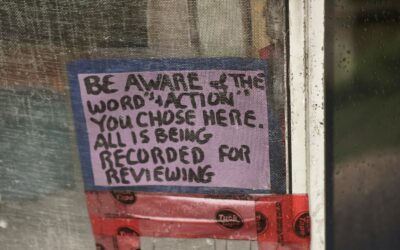 BE AWARE of THE
WORD"+ACTION"
YOU CHOSE HERE.
ALL IS BEING
RECORDED FOR
REVIEWING
Tuck